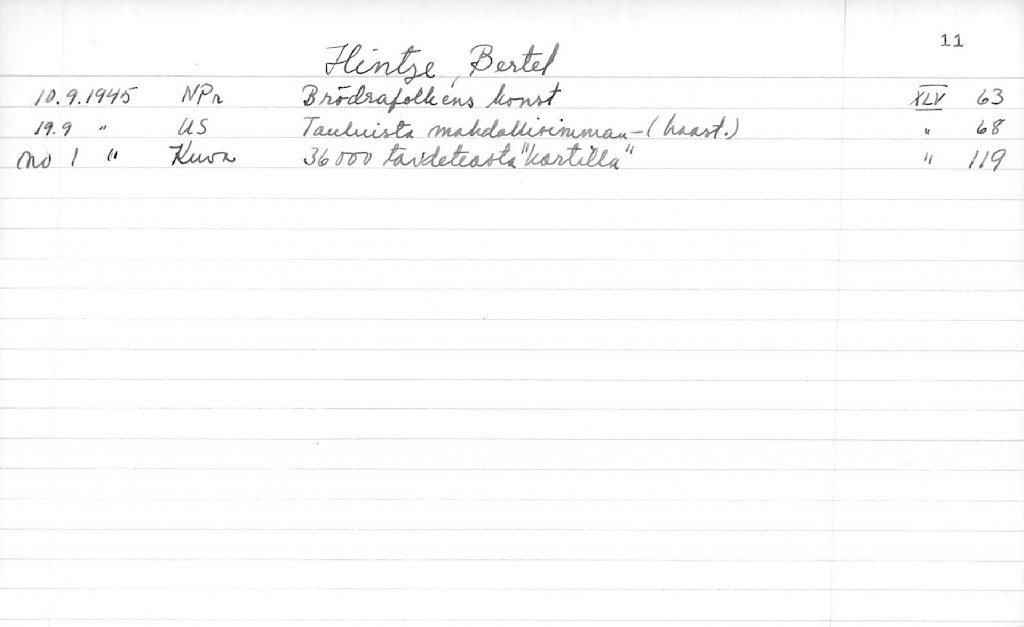 11
Hintze, Bertel
10.9.1945 NPr Brödrafolkens konst XLV 63
19.9 " US Tauluista mahdollisimman - (haast.) " 68
no 1 " Kuva 36000 taideteosta "kortilla" " 119